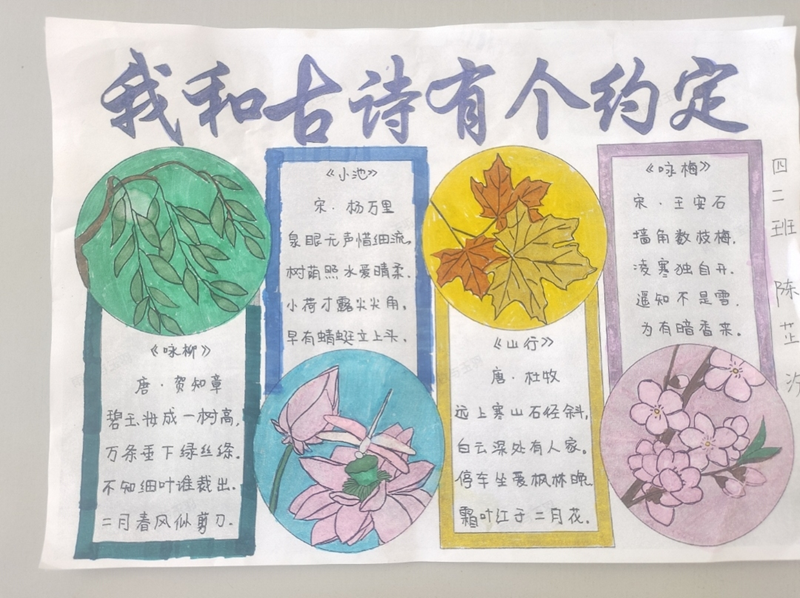 我和古诗有个约定
《咏柳》
唐·贺知章
碧玉妆成一树高,
万条垂下绿丝绦.
不知细叶谁裁出.
二月春风似剪刀.
《小池》
宋·杨万里
泉眼无声惜细流,
树荫照水爱晴柔.
小荷才露尖尖角.
早有蜻蜓立上头.
《山行》
唐·杜牧
远上寒山石径斜,
白云深处有人家.
停车坐爱枫林晚.
霜叶红于二月花.
《咏梅》
宋·王安石
墙角数枝梅,
凌寒独自开.
遥知不是雪.
为有暗香来.
四二班 陈芷汐